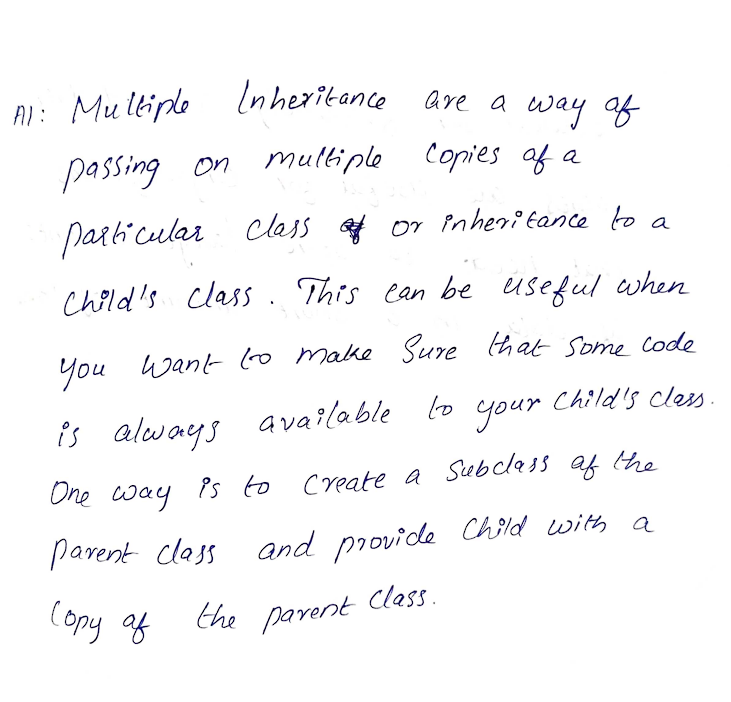 A1: Multiple Inheritance are a way of
passing on multiple Copies of a
particular class or inheritance to a
child's class. This can be useful when
you want to make sure that some code
is always available to your child's class.
One way is to create a subclass of the
parent class and provide child with a
copy of the parent class.